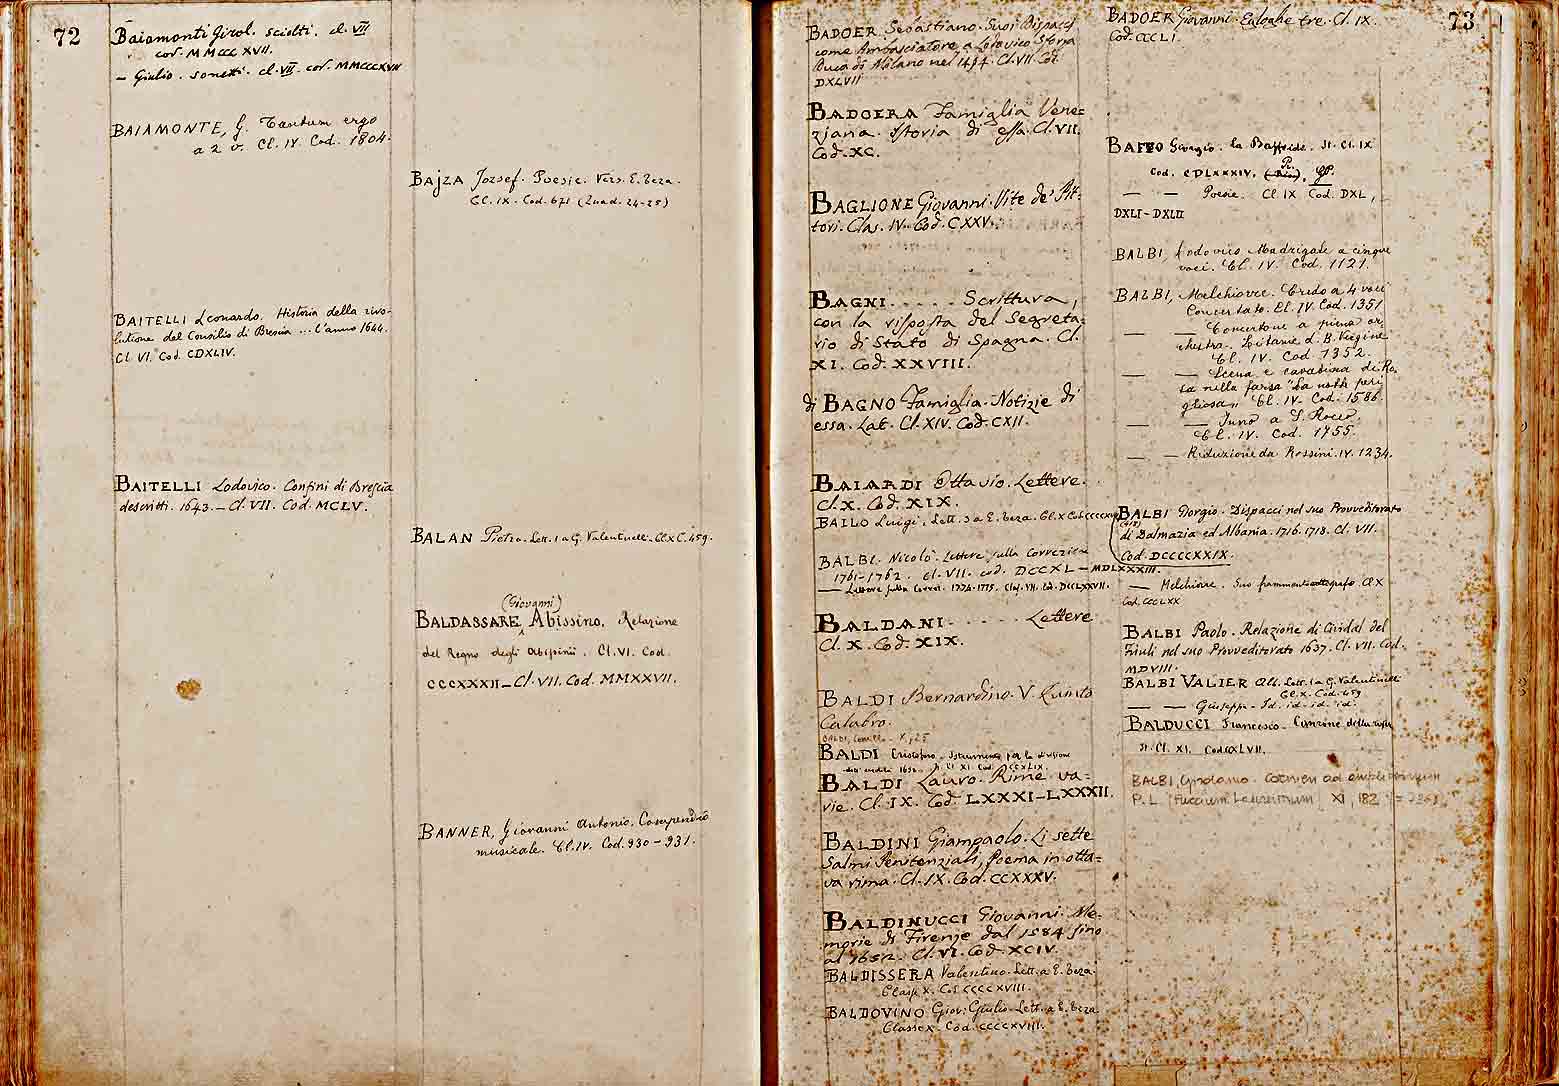 72
Baiamonti Girol. sciolti. cl. VII
cod. MMCCCXVII.
— Giulio. sonetti. cl. VII. cod. MMCCCXVII
BAIAMONTE, G. Tantum ergo
a 2 v. Cl. IV Cod. 1804.
BAITELLI Leonardo. Historia della rivo-
lutione del Consilio di Brescia ... l'anno 1644.
Cl. VI. Cod. CDXLIV.
BAITELLI Lodovico. Confini di Brescia
descritti. 1643. — Cl. VII. Cod. MCLV.
BAJZA József. Poesie. Vers. E. Teza.
Cl. IX. Cod. 671 (Quad. 24-25)
BALAN Pietro. Lett. 1 a G. Valentinelli. Cl. X C. 459.
(Giovanni)
BALDASSARE Abissino. Relazione
del Regno degli Abissinii. Cl. VI. Cod.
CCCXXXII — Cl. VII. Cod. MMXXVII.
BANNER, Giovanni Antonio. Compendio
musicale. Cl. IV. Cod. 930 - 931.
BADOER Sebastiano. Suoi Dispacci
come Ambasciatore a Lodovico Sforza
Duca di Milano nel 1494. Cl. VII. Cod.
DXLVII
BADOERA Famiglia Vene=
ziana. Storia di essa. Cl. VII.
Cod. XC.
BAGLIONE Giovanni. Vite de' Pit-
tori. Clas. IV. Cod. CXXV.
BAGNI ..... Scrittura,
con la risposta del Segreta-
rio di Stato di Spagna. Cl.
XI. Cod. XXVIII.
di BAGNO Famiglia. Notizie di
essa. Lat. Cl. XIV. Cod. CXII.
BAIARDI Ottavio. Lettere.
Cl. X. Cod. XIX.
BAILO Luigi. Lett. 3 a E. Teza. Cl. X Cod.
BALBI. Nicolò. Lettere sulla Correzione
1761-1762. cl. VII. cod. DCCXL — MDLXXXIII.
— Lettere sulla Correz. 1774. 1775. Clas. VII. Cod. DCCLXXVII.
BALDANI ...... Lettere
Cl. X. Cod. XIX.
BALDI Bernardino. V. Quinto
Calabro.
BALDI Cristoforo. Istrumento per la divisione
Cl. XI. Cod. CCXLIX.
BALDI Lauro. Rime va=
rie. Cl. IX. Cod. LXXXI-LXXXII.
BALDINI Giampaolo. Li sette
Salmi Penitenziali, Poema in otta=
va rima. Cl. IX. Cod. CCXXXV.
BALDINUCCI Giovanni. Me-
morie di Firenze dal 1584 sino
al 1652. Cl. VI. Cod. XCIV.
BALDISSERA Valentino. Lett. a E. Teza.
Classe X. Cod. CCCCXVIII.
BALDOVINO Giov: Giulio. Lett. a E. Teza
Classe X. Cod. CCCCXVIII.
73
BADOER Giovanni. Egloghe tre. Cl. IX.
Cod. CCCLI.
BAFFO Giorgio. la Baffeide. It. Cl. IX
Cod. CDLXXXIV.
— — Poesie. Cl IX Cod. DXL,
DXLI-DXLII
BALBI, Lodovico Madrigale a cinque
voci. Cl. IV. Cod. 1121.
BALBI, Melchiorre. Credo a 4 voci
Concertato. Cl. IV. Cod. 1351
— — Concertone a piena or-
chestra. Litanie d. B. Vergine
Cl. IV. Cod 1352.
— — Scena e cavatina di Ro-
sa nella farsa "La notte peri
gliosa" Cl. IV. Cod. 1586.
— — Inno a S. Rocco.
Cl. IV. Cod. 1755.
— — Riduzione da Rossini. IV. 1234.
BALBI Giorgio. Dispacci nel suo Provveditorato
di Dalmazia ed Albania. 1716. 1718. Cl. VII.
Cod. DCCCCXXIX.
— Melchiorre. Suo frammento autografo. Cl X
Cod. CCCLXX
BALBI Paolo. Relazione di Cividal del
Friuli nel suo Provveditorato 1637. Cl. VII. Cod.
MDVIII.
BALBI VALIER Lett. 1 a G. Valentinelli
Cl. X. Cod. 459
— — Giuseppe. Id. id. id. id.
BALDUCCI Francesco. Canzone della
It. Cl. XI.
BALBI, Girolamo. Carmen ad
P. L. XI, 182